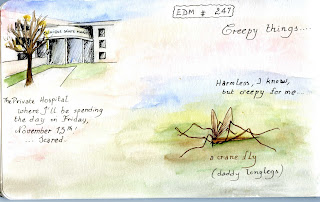 EDM # 247
Creepy things....
Harmless, I know,
but creepy for me...
The Private Hospital
where I'll be spending
the day on Friday,
November 13th!
... Scared.
a crane fly
(daddy longlegs)